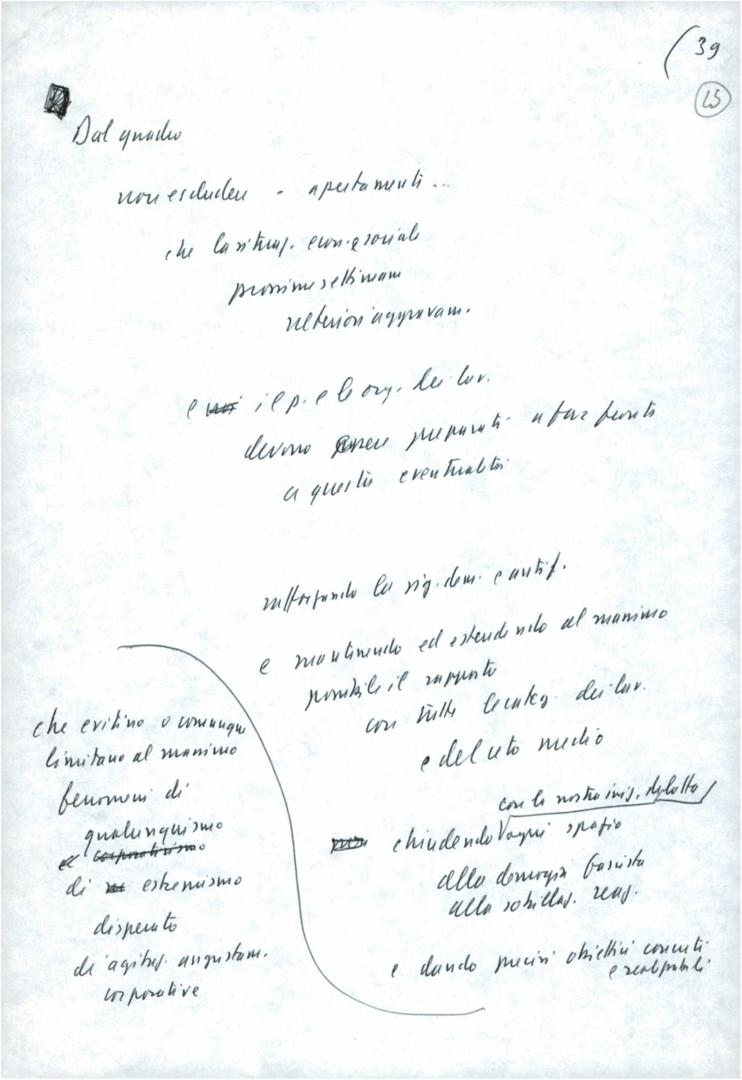 (39
15
Dal quadro
non escludere - apertamenti...
che la situaz. econ. e sociale
prossime settimane
ulteriori aggravam.
e noi il p. e le org. dei lav.
devono essere preparati a far fronte
a questa eventualità
rafforzando la vig. dem. e antif.
e mantenendo ed estendendo al massimo
possibile il rapporto
con tutte le categ. dei lav.
e del ceto medio
con le nostre iniz. di lotta
chiudendo ogni spazio
alla demagogia fascista
alla sobillaz. reaz.
e dando precisi obiettivi concreti
e realizzabili
che evitino o comunque
limitano al massimo
fenomeni di
qualunquismo
e corporativismo
di estremismo
disperato
di agitaz. angustam.
corporative